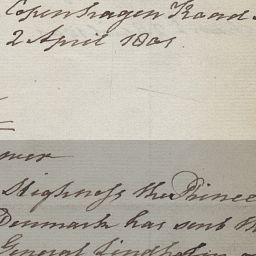 Copenhagen Road
2 April 1801.
Highness the Prince
Denmark has sent
General Lindholm